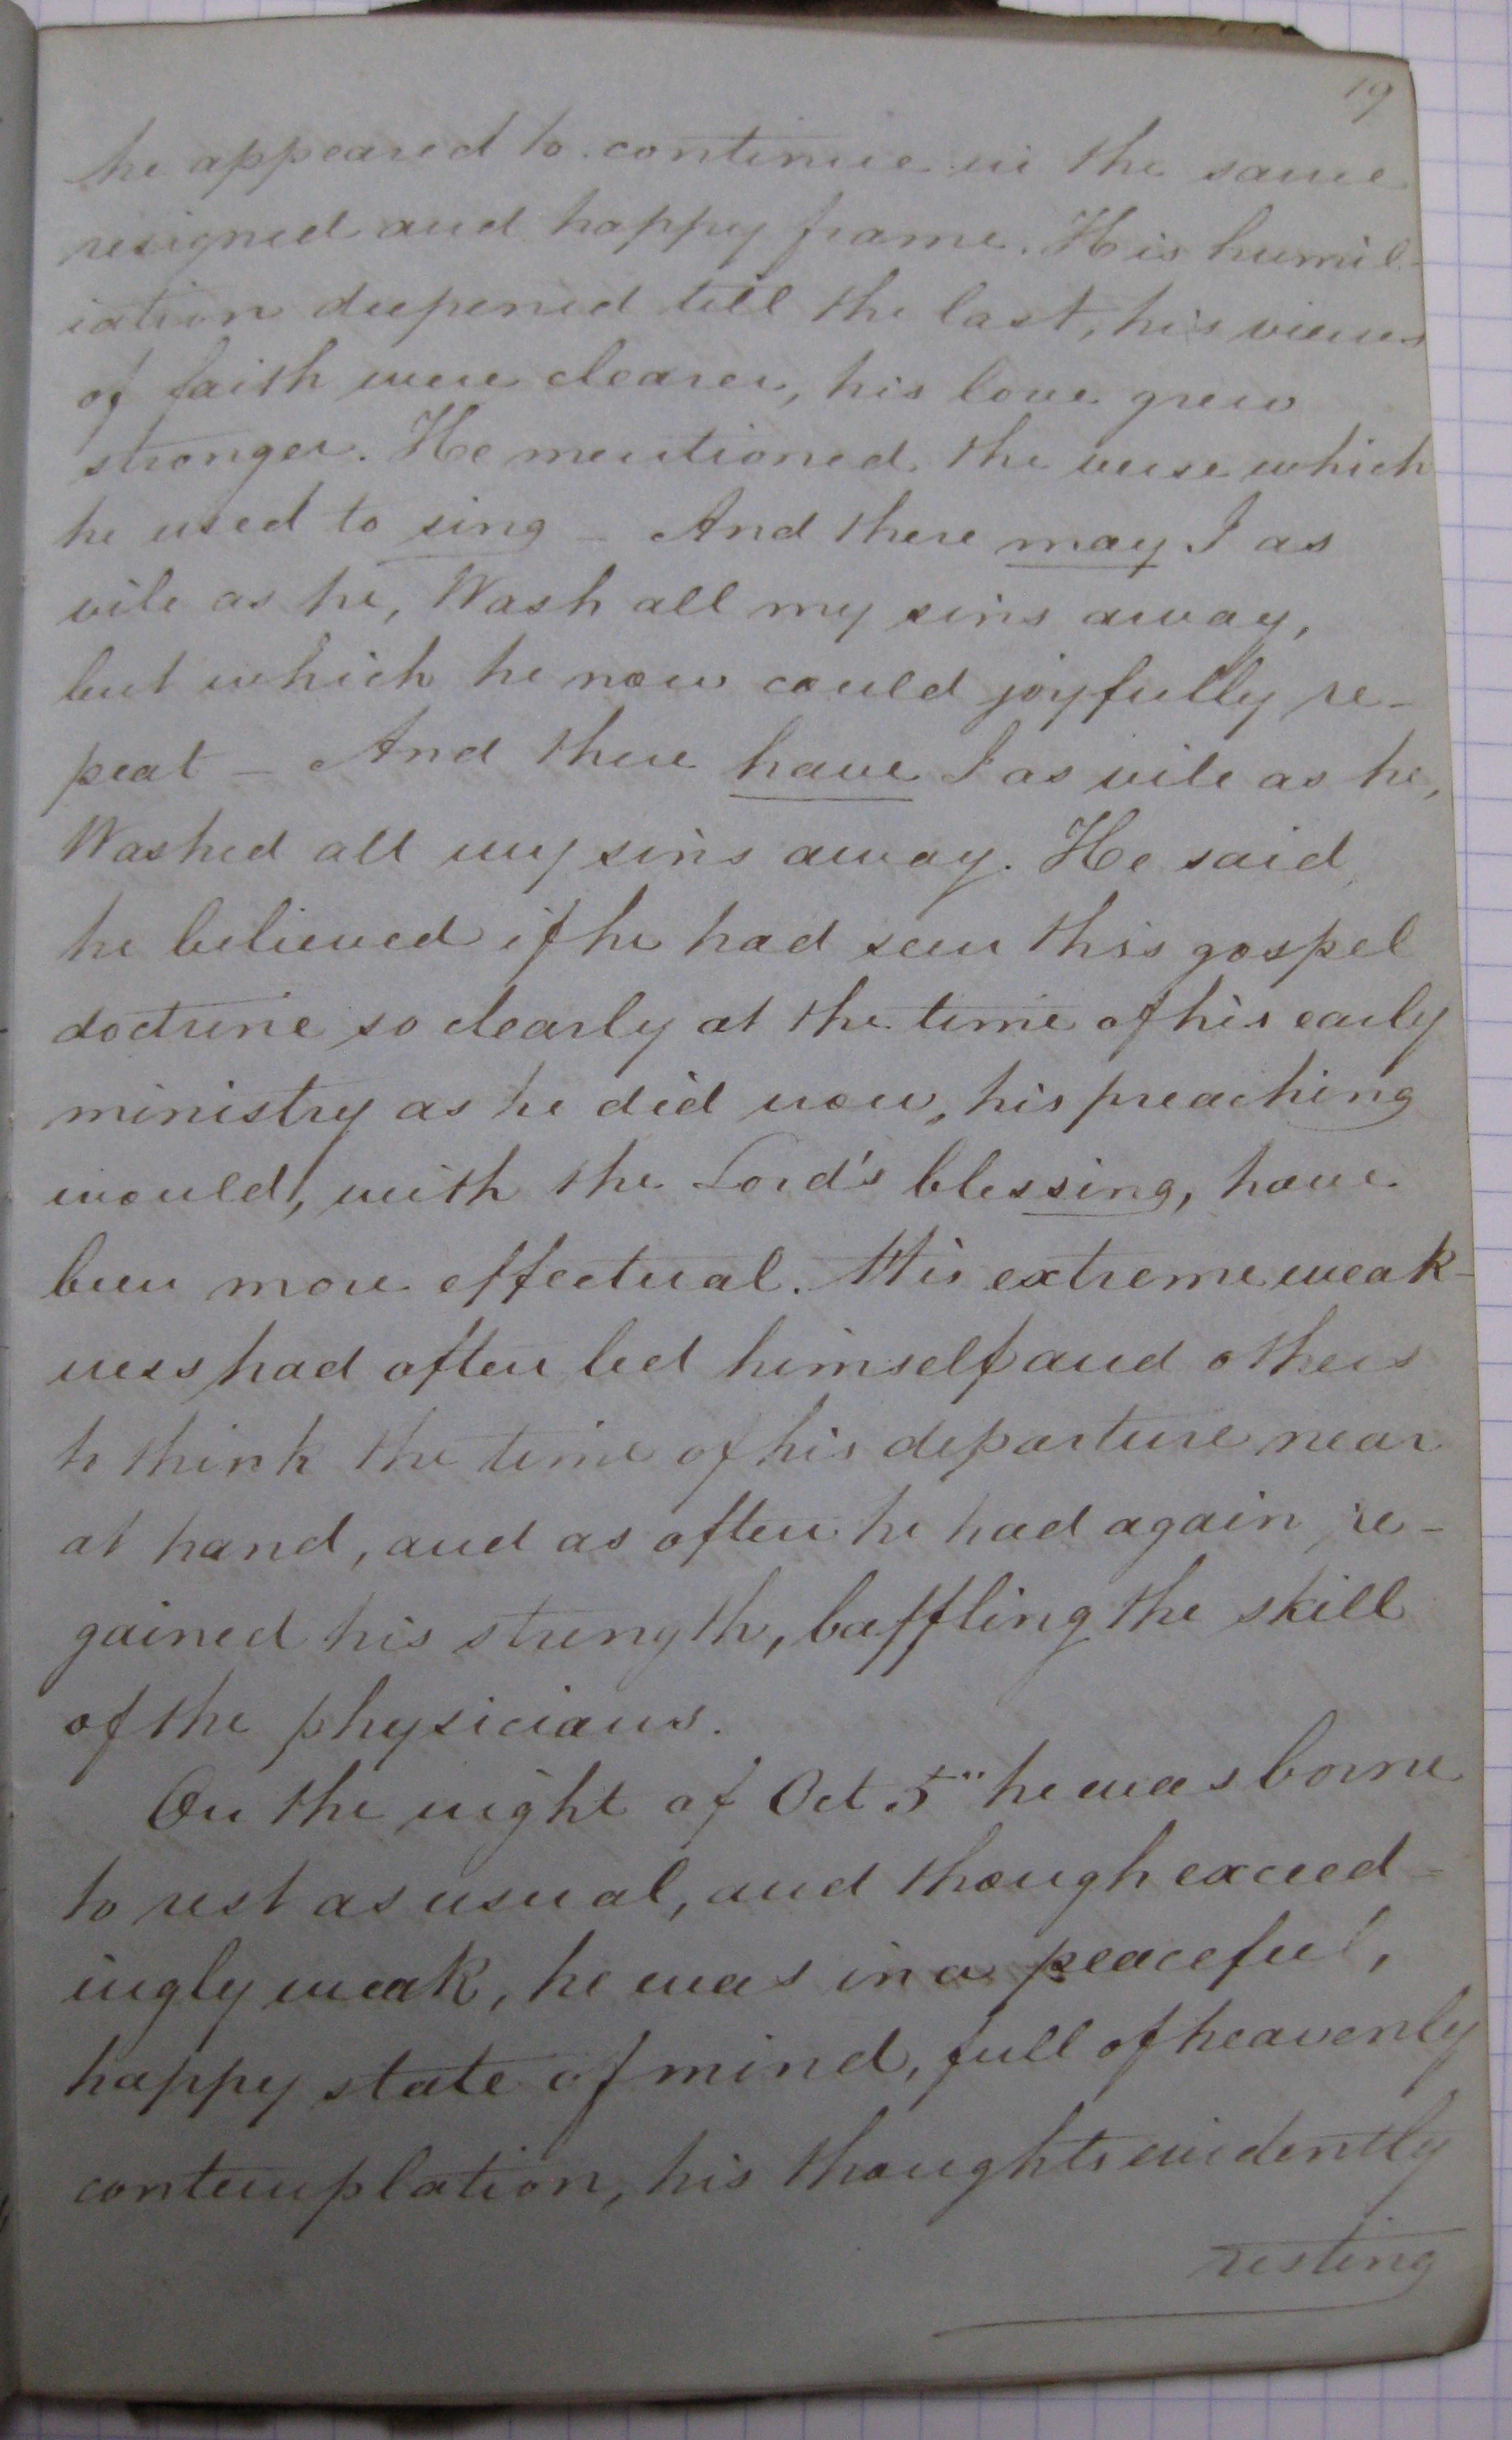 19
he appeared to continue in the same
resigned and happy frame. His humil-
iation deepened till the last, his views
of faith were clearer, his love grew
stronger. He mentioned the verse which
he used to sing – And there may I as
vile as he, Wash all my sins away,
but which he now could joyfully re-
peat – And there have I as vile as he,
Washed all my sins away. He said
he believed if he had seen this gospel
doctrine so clearly at the time of his early
ministry as he did now, his preaching
would, with the Lord's blessing, have
been more effectual. His extreme weak-
ness had often led himself and others
to think the time of his departure near
at hand, and as often he had again re-
gained his strength, baffling the skill
of the physicians.
On the night of Oct 5" he was borne
to rest as usual, and though exceed-
ingly weak, he was in a peaceful,
happy state of mind, full of heavenly
contemplation, his thoughts evidently
resting